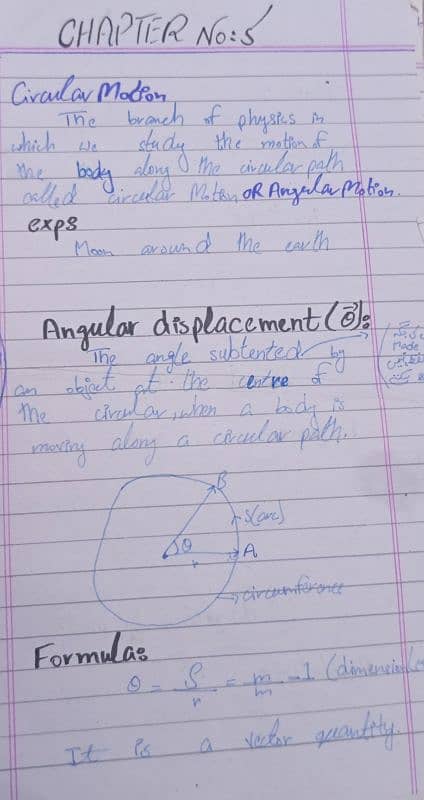 CHAPTER No:5
Circular Motion
The branch of physics in
which we study the motion of
the body along the circular path
called circular Motion OR Angular Motion.
exps
Moon around the earth
Angular displacement (θ⃗):
The angle subtented by
Made
an object at the centre of
the circular, when a body is
moving along a circular path.
B
S(arc)
θ
r
A
circumference
Formula:
θ = S/r = m/m = 1 (dimension
It is a vector quantity.